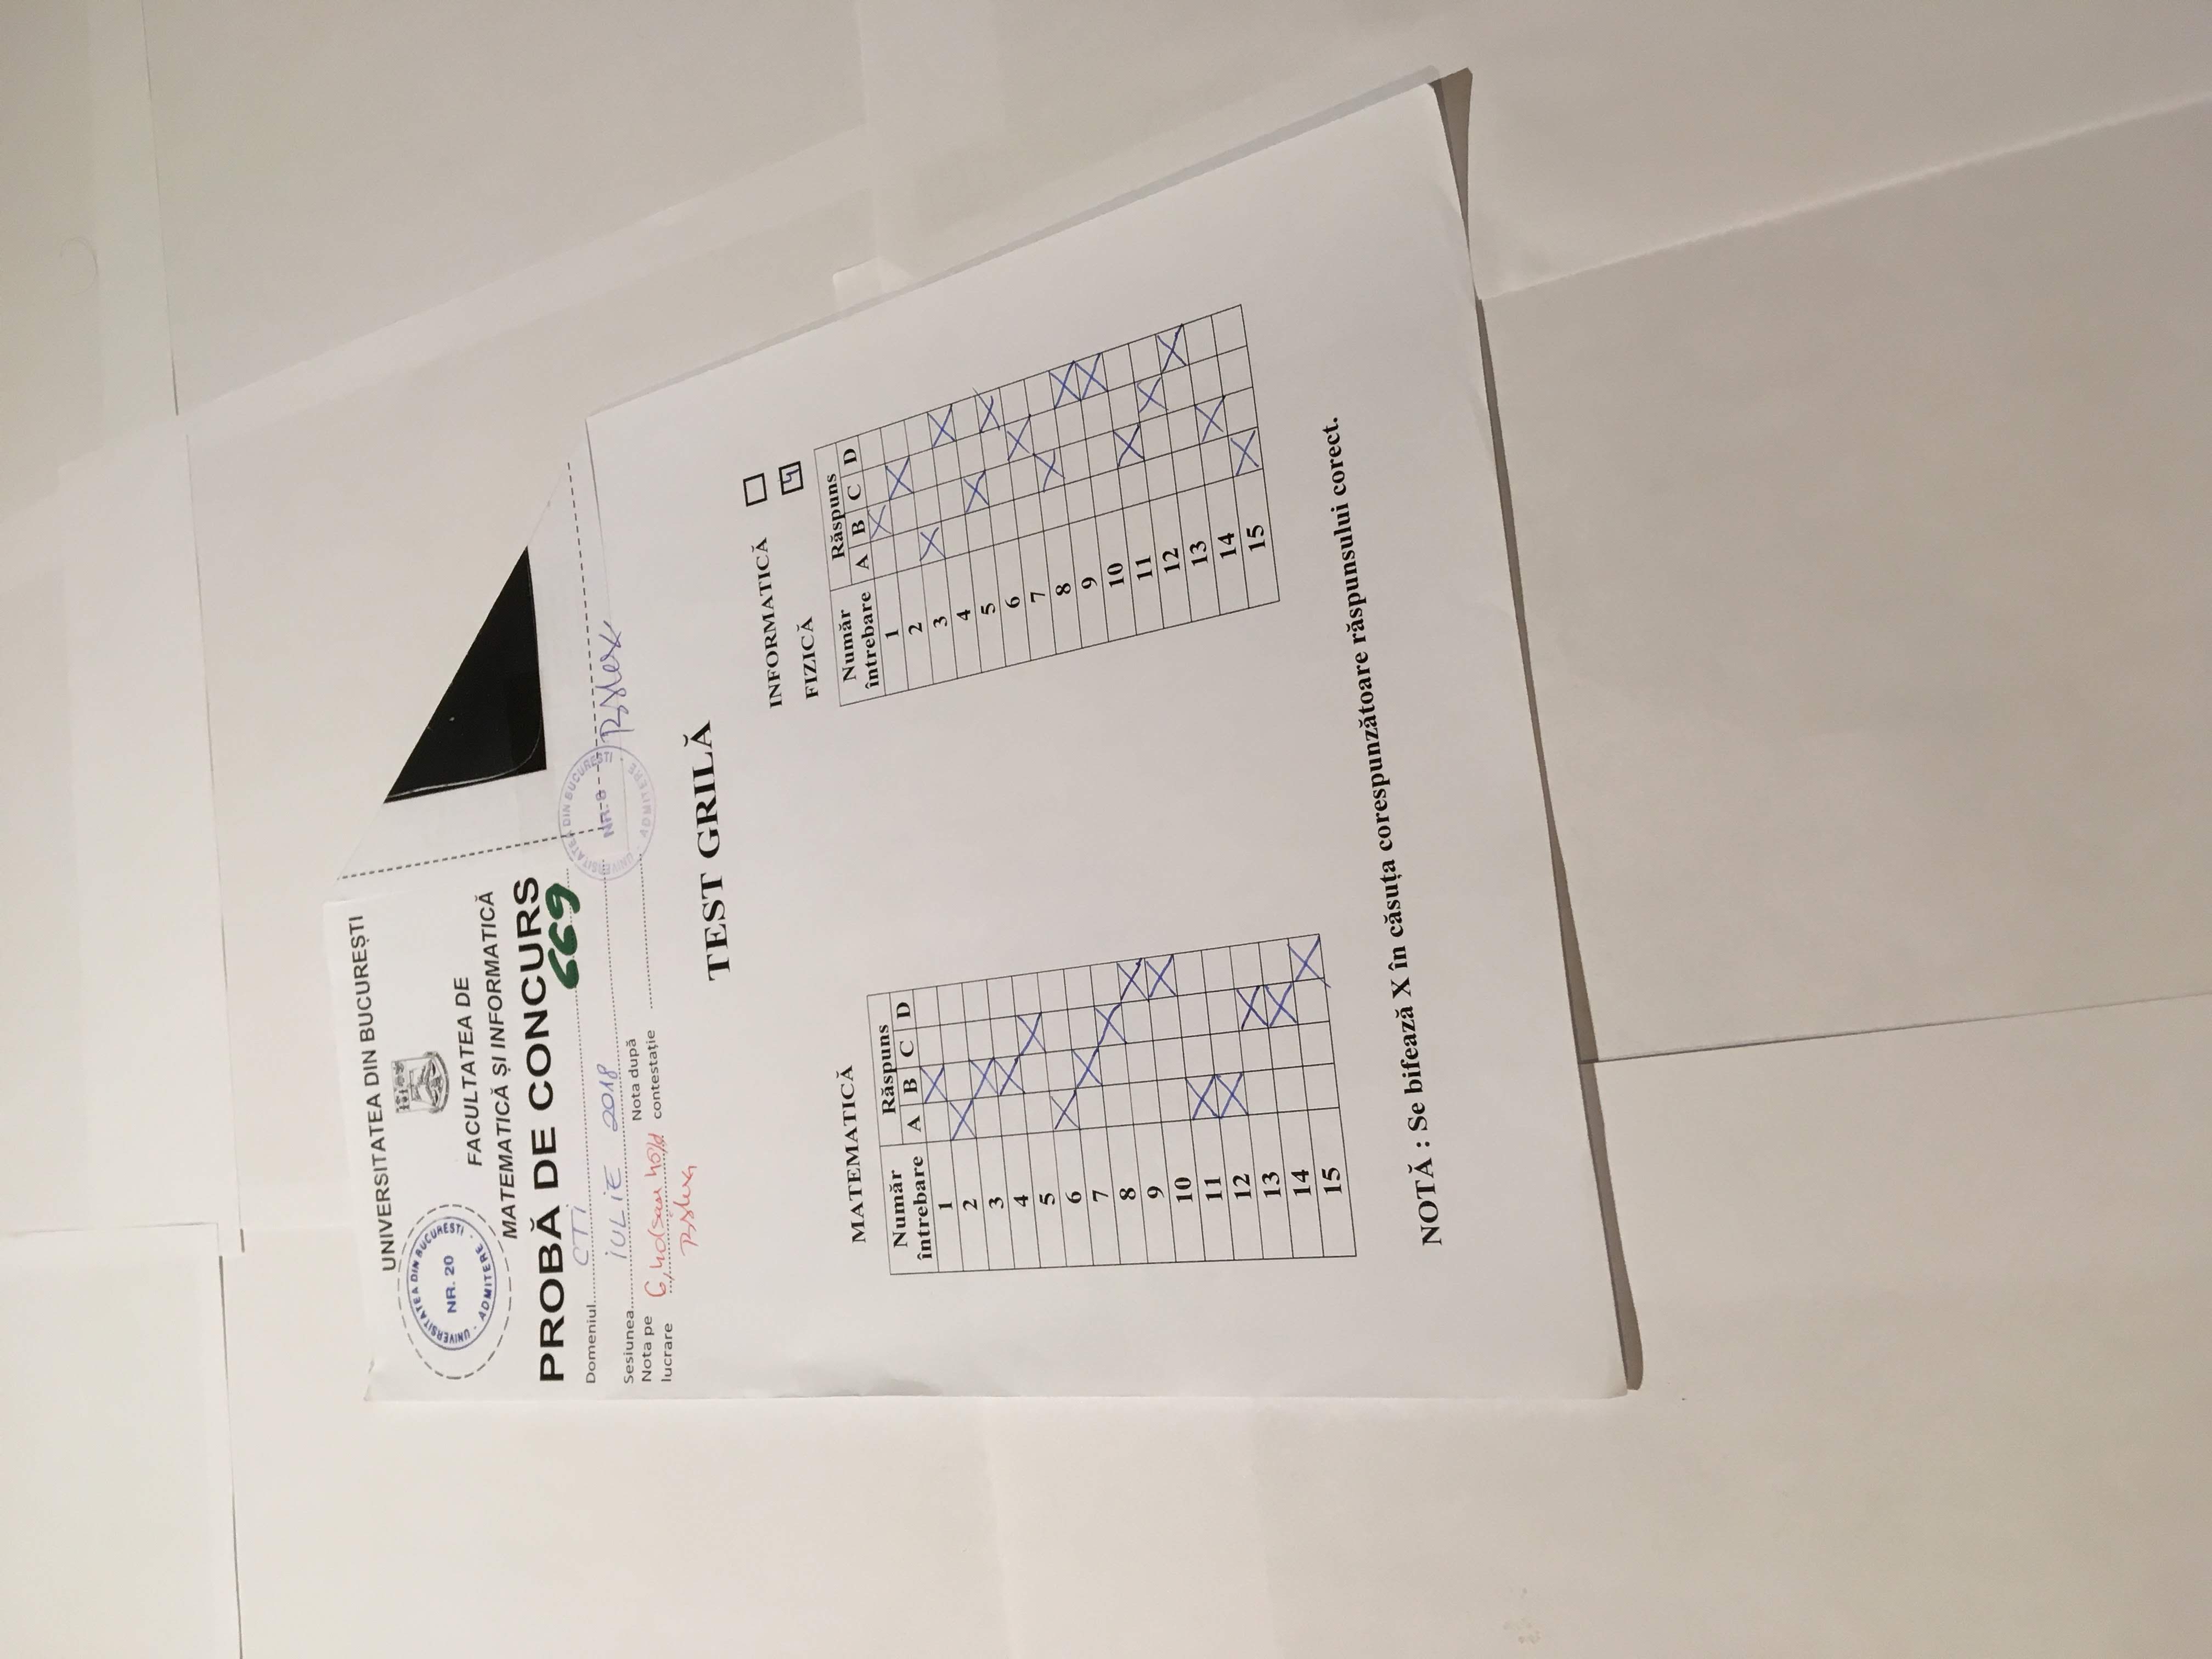 UNIVERSITATEA DIN BUCUREȘTI
UNIVERSITATEA DIN BUCUREȘTI
NR. 20
ADMITERE
FACULTATEA DE
MATEMATICĂ ȘI INFORMATICĂ
PROBĂ DE CONCURS
669
Domeniul CTI
Sesiunea IULIE 2018
Nota pe lucrare 6,40
Nota după contestație
UNIVERSITATEA DIN BUCUREȘTI
NR. 8
ADMITERE
TEST GRILĂ
INFORMATICĂ
FIZICĂ 4
MATEMATICĂ
Număr întrebare Răspuns
A B C D
1 X
2 X
3 X
4 X
5 X
6 X
7 X
8 X
9 X
10 X
11 X
12 X
13 X
14 X
15 X
Număr întrebare Răspuns
A B C D
1 X
2 X
3 X
4 X
5 X
6 X
7 X
8 X
9 X
10 X
11 X
12 X
13 X
14 X
15 X
NOTĂ : Se bifează X în căsuța corespunzătoare răspunsului corect.